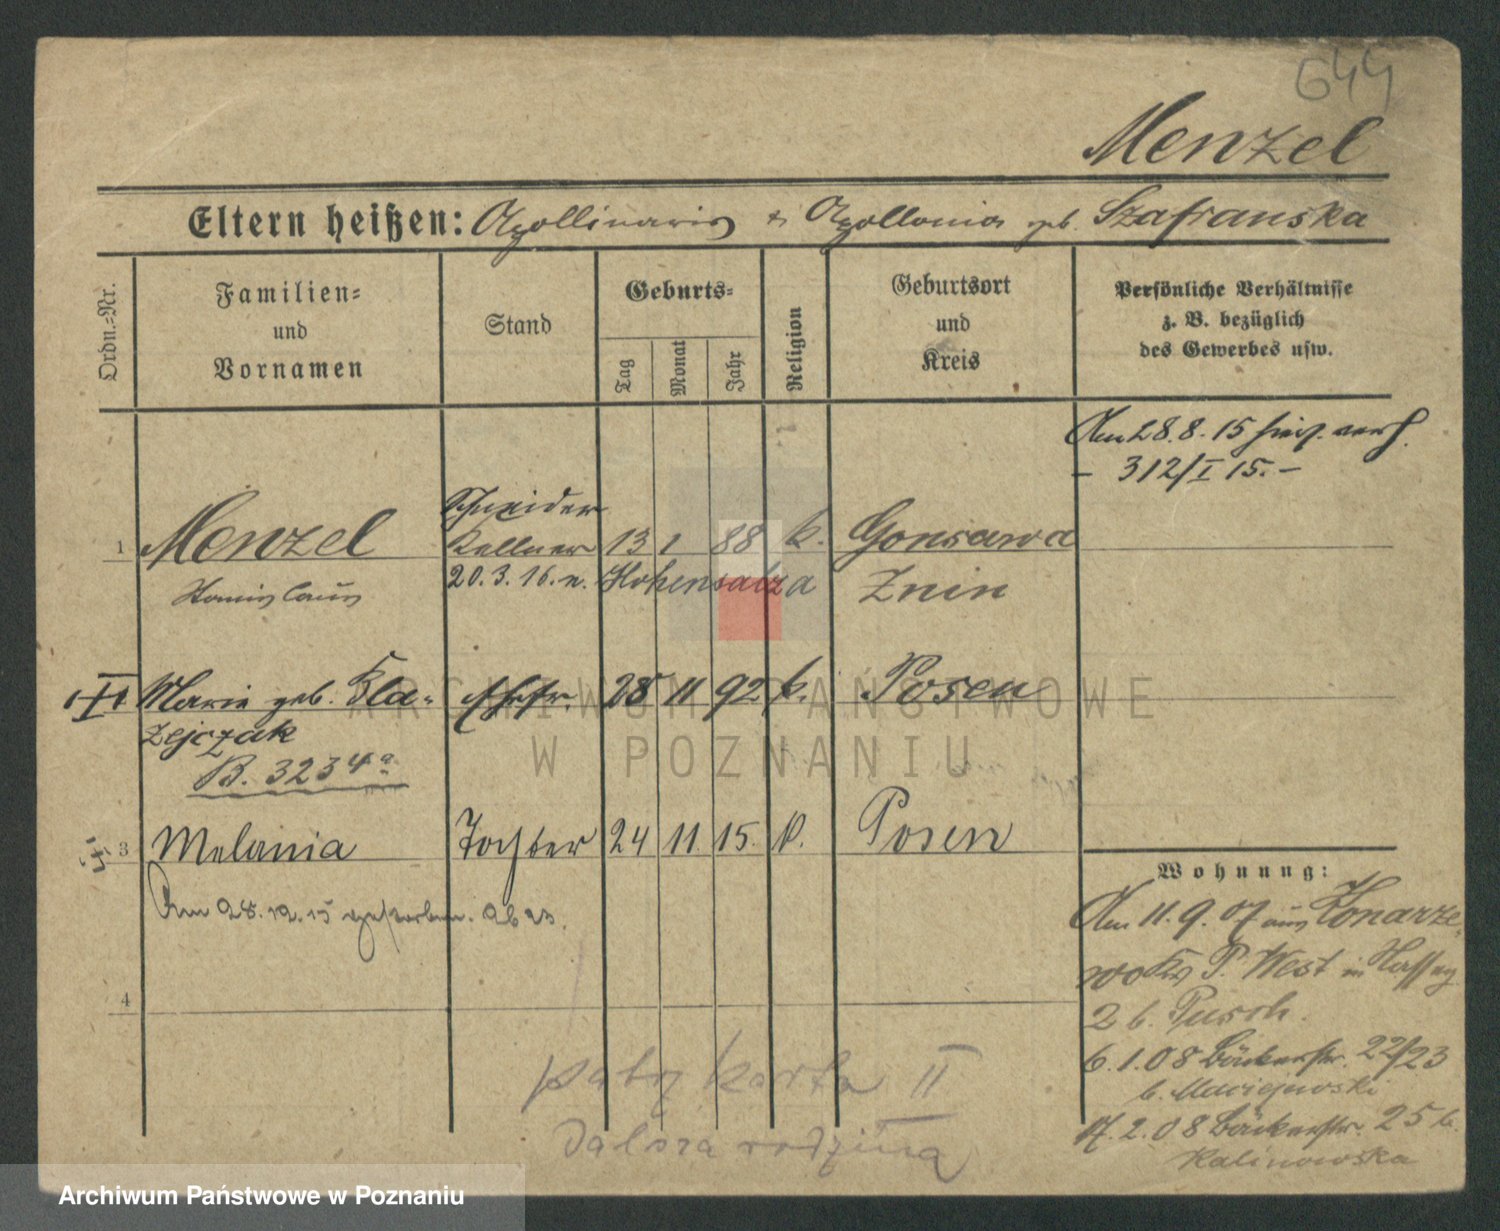 644
Menzel
Eltern heißen: Apollinaris & Apollonia geb. Szafranska
Ordn.=Nr.
Familien=
und
Vornamen
Stand
Geburts=
Tag
Monat
Jahr
Religion
Geburtsort
und
Kreis
Persönliche Verhältnisse
z. B. bezüglich
des Gewerbes usw.
Am 28.8.15 verh.
- 312/I 15. -
Schneider
1 Menzel Kellner 13 1 88 k. Gonsawa
Stanislaus 20.3.16. n. Hohensalza Znin
Marie geb. Bla- Ehefr. 28 11 92. k. Posen
zejczak
B. 3234a
3 Melania Tochter 24 11. 15. k. Posen
Am 28.12.15 gestorben.
4
Wohnung:
Am 11.9.07 aus Konarze-
wo Krs P. West in
2 b. Pusch.
6.1.08 Bäckerstr. 22/23
b. Maciejewski
17.2.08 Bäckerstr. 25 b.
Kalinowska
patrz karta II
dalsza rodzina
ARCHIWUM PAŃSTWOWE
W POZNANIU
Archiwum Państwowe w Poznaniu